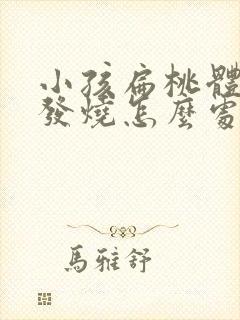 小孩扁桃體
發燒怎麼處
馬雅舒